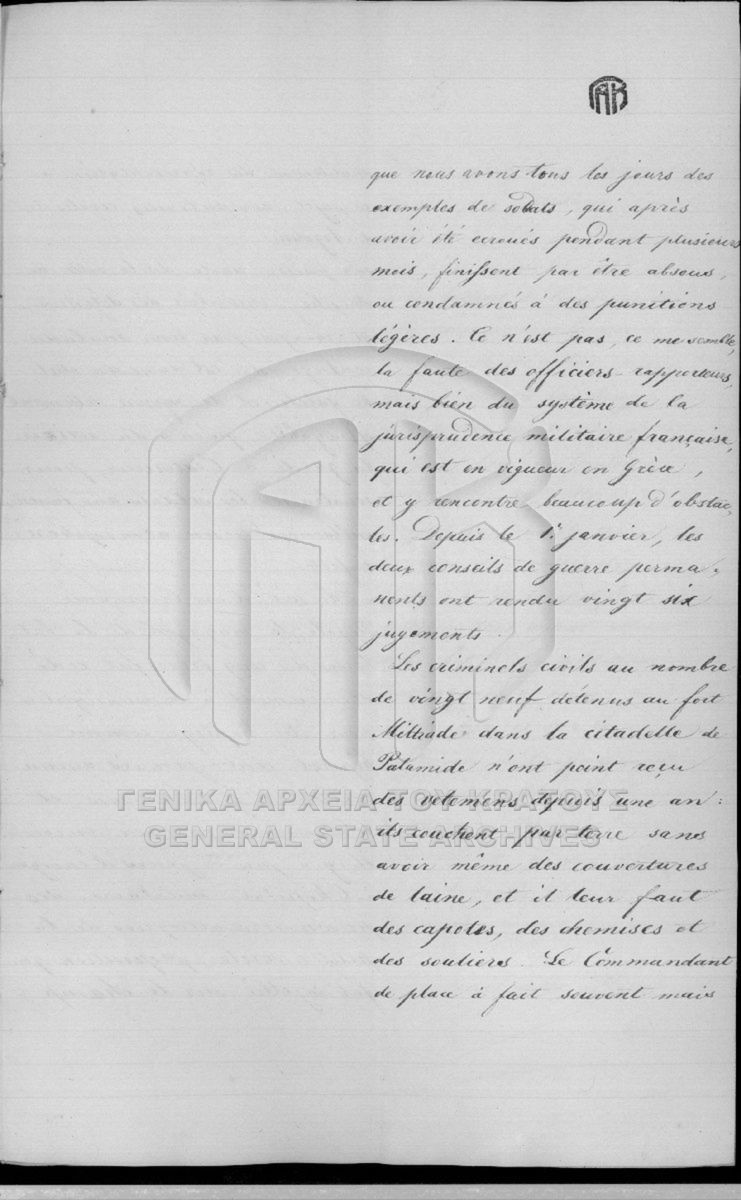 que nous avons tous les jours des
exemples de soldats, qui après
avoir été écroués pendant plusieurs
mois, finissent par être absous,
ou condamnés à des punitions
légères. Ce n'est pas, ce me semble,
la faute des officiers-rapporteurs,
mais bien du système de la
jurisprudence militaire française,
qui est en vigueur en Grèce,
et y rencontre beaucoup d'obsta-
cles. Depuis le 1r janvier, les
deux conseils de guerre perma-
nents ont rendu vingt six
jugements.
Les criminels civils au nombre
de vingt neuf détenus au fort
Miltiade dans la citadelle de
Palamide n'ont point reçu
des vetemens depuis une an:
ΓΕΝΙΚΑ ΑΡΧΕΙΑ ΤΟΥ ΚΡΑΤΟΥΣ
GENERAL STATE ARCHIVES
ils couchent par terre sans
avoir même des couvertures
de laine, et il leur faut
des capotes, des chemises et
des souliers. Le Commandant
de place à fait souvent mais